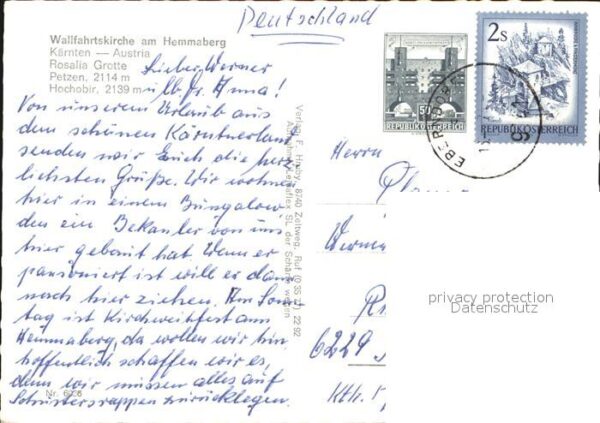 Deutschland
Wallfahrtskirche am Hemmaberg
Kärnten — Austria
Rosalia Grotte
Petzen, 2114 m
Hochobir, 2139 m
Lieber Werner
u. lb. Fr. Anna!
Von unserem Urlaub aus
dem schönen Kärntnerland
senden wir Euch die herz
lichsten Grüße. Wir wohnen
hier in einem Bungalow
den ein Bekannter von uns
hier gebaut hat. Wenn er
pensioniert ist will er dann
nach hier ziehen. Am Sonn
tag ist Kirchweihfest am
Hemmaberg, da wollen wir hin,
hoffentlich schaffen wir es,
denn wir müssen alles auf
Schustersrappen zurücklegen.
Nr. 6676
Verlag F. Hruby, 8740 Zeltweg, Ruf (0 35 77) 22 92
SL der
50
REPUBLIK ÖSTERREICH
2s
REPUBLIK ÖSTERREICH
EBERNDORF
Herrn
Werner
6229
privacy protection
Datenschutz